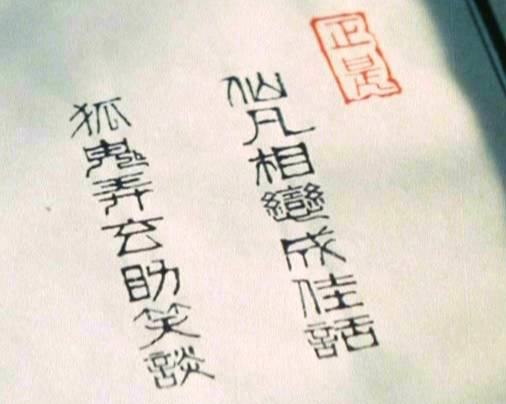 正是
仙凡相變成佳話
狐鬼弄玄助笑談